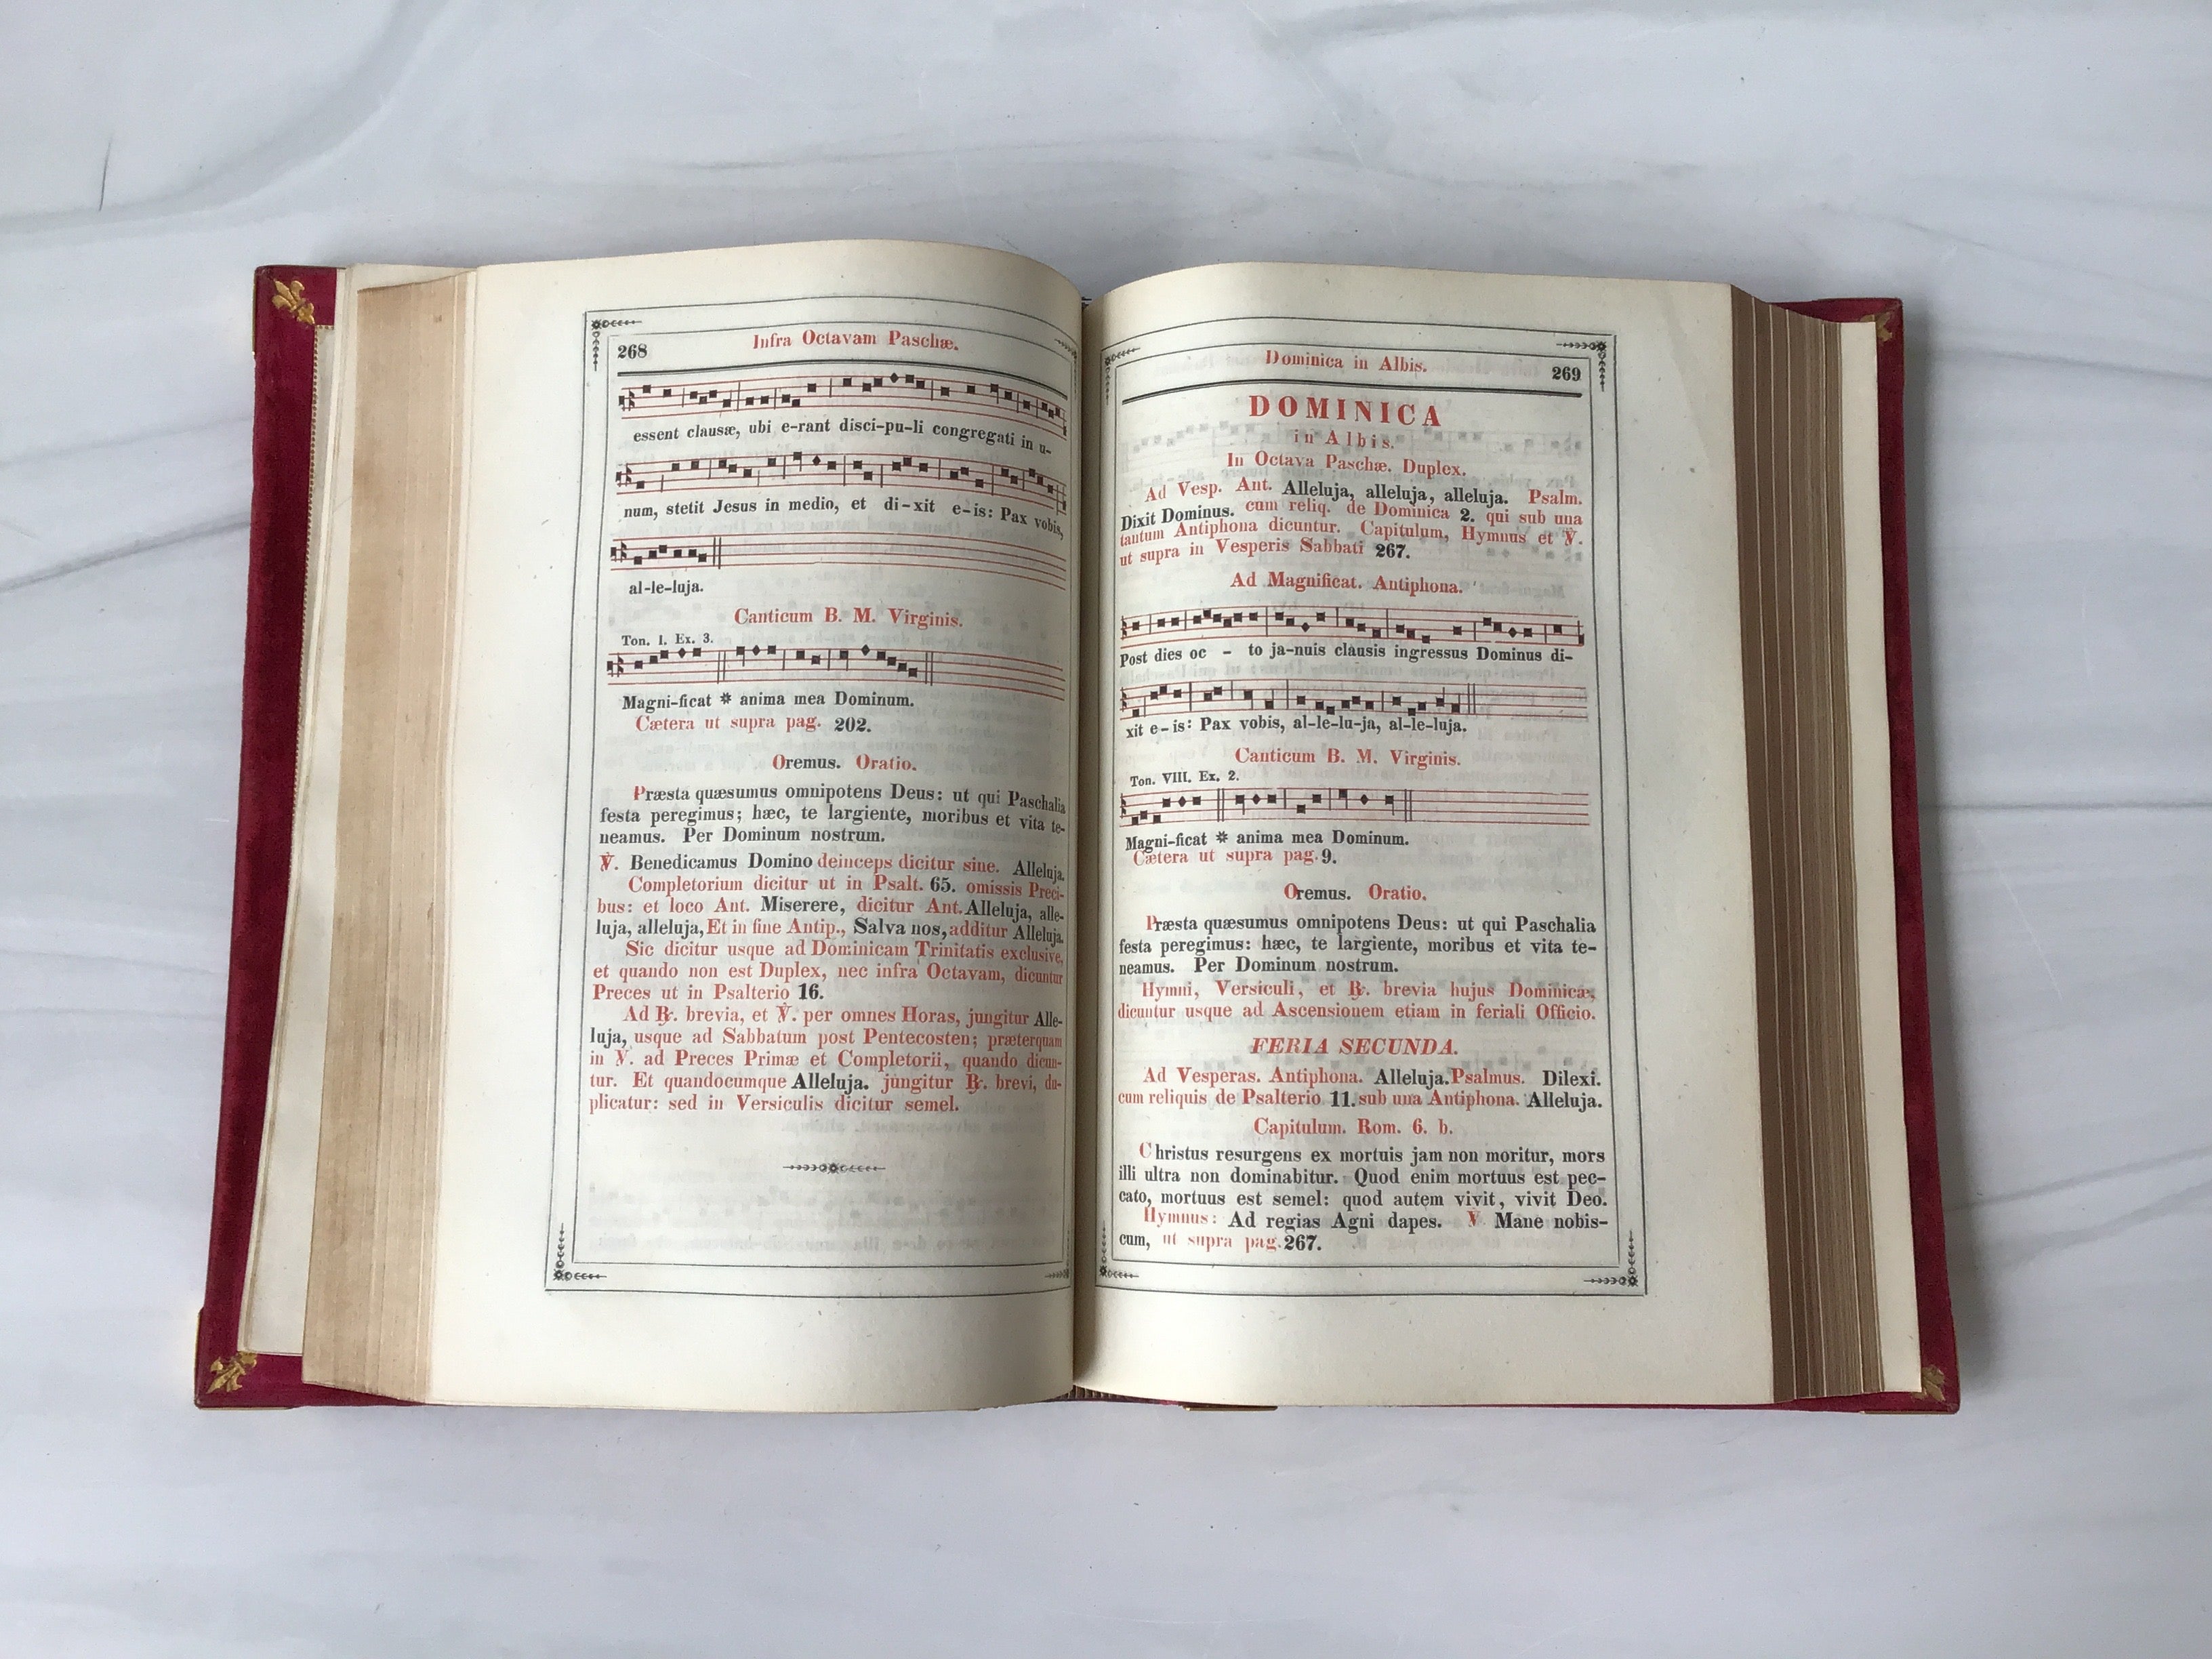 268
Infra Octavam Paschæ.
essent clausæ, ubi e-rant disci-pu-li congregati in u-
num, stetit Jesus in medio, et di-xit e-is: Pax vobis,
al-le-luja.
Canticum B. M. Virginis.
Ton. I. Ex. 3.
Magni-ficat ✲ anima mea Dominum.
Cætera ut supra pag. 202.
Oremus. Oratio.
Præsta quæsumus omnipotens Deus: ut qui Paschalia
festa peregimus; hæc, te largiente, moribus et vita te-
neamus. Per Dominum nostrum.
℣. Benedicamus Domino deinceps dicitur sine. Alleluja.
Completorium dicitur ut in Psalt. 65. omissis Preci-
bus: et loco Ant. Miserere, dicitur Ant. Alleluja, alle-
luja, alleluja, Et in fine Antip., Salva nos, additur Alleluja.
Sic dicitur usque ad Dominicam Trinitatis exclusive,
et quando non est Duplex, nec infra Octavam, dicuntur
Preces ut in Psalterio 16.
Ad ℟. brevia, et ℣. per omnes Horas, jungitur Alle-
luja, usque ad Sabbatum post Pentecosten; præterquam
in ℣. ad Preces Primæ et Completorii, quando dicun-
tur. Et quandocumque Alleluja. jungitur ℟. brevi, du-
plicatur: sed in Versiculis dicitur semel.
Dominica in Albis.
269
DOMINICA
in Albis.
In Octava Paschæ. Duplex.
Ad Vesp. Ant. Alleluja, alleluja, alleluja. Psalm.
Dixit Dominus. cum reliq. de Dominica 2. qui sub una
tantum Antiphona dicuntur. Capitulum, Hymnus et ℣.
ut supra in Vesperis Sabbati 267.
Ad Magnificat. Antiphona.
Post dies oc - to ja-nuis clausis ingressus Dominus di-
xit e-is: Pax vobis, al-le-lu-ja, al-le-luja.
Canticum B. M. Virginis.
Ton. VIII. Ex. 2.
Magni-ficat ✲ anima mea Dominum.
Cætera ut supra pag. 9.
Oremus. Oratio.
Præsta quæsumus omnipotens Deus: ut qui Paschalia
festa peregimus: hæc, te largiente, moribus et vita te-
neamus. Per Dominum nostrum.
Hymni, Versiculi, et ℟. brevia hujus Dominicæ,
dicuntur usque ad Ascensionem etiam in feriali Officio.
FERIA SECUNDA.
Ad Vesperas. Antiphona. Alleluja. Psalmus. Dilexi.
cum reliquis de Psalterio 11. sub una Antiphona. Alleluja.
Capitulum. Rom. 6. b.
Christus resurgens ex mortuis jam non moritur, mors
illi ultra non dominabitur. Quod enim mortuus est pec-
cato, mortuus est semel: quod autem vivit, vivit Deo.
Hymnus: Ad regias Agni dapes. ℣ Mane nobis-
cum, ut supra pag. 267.